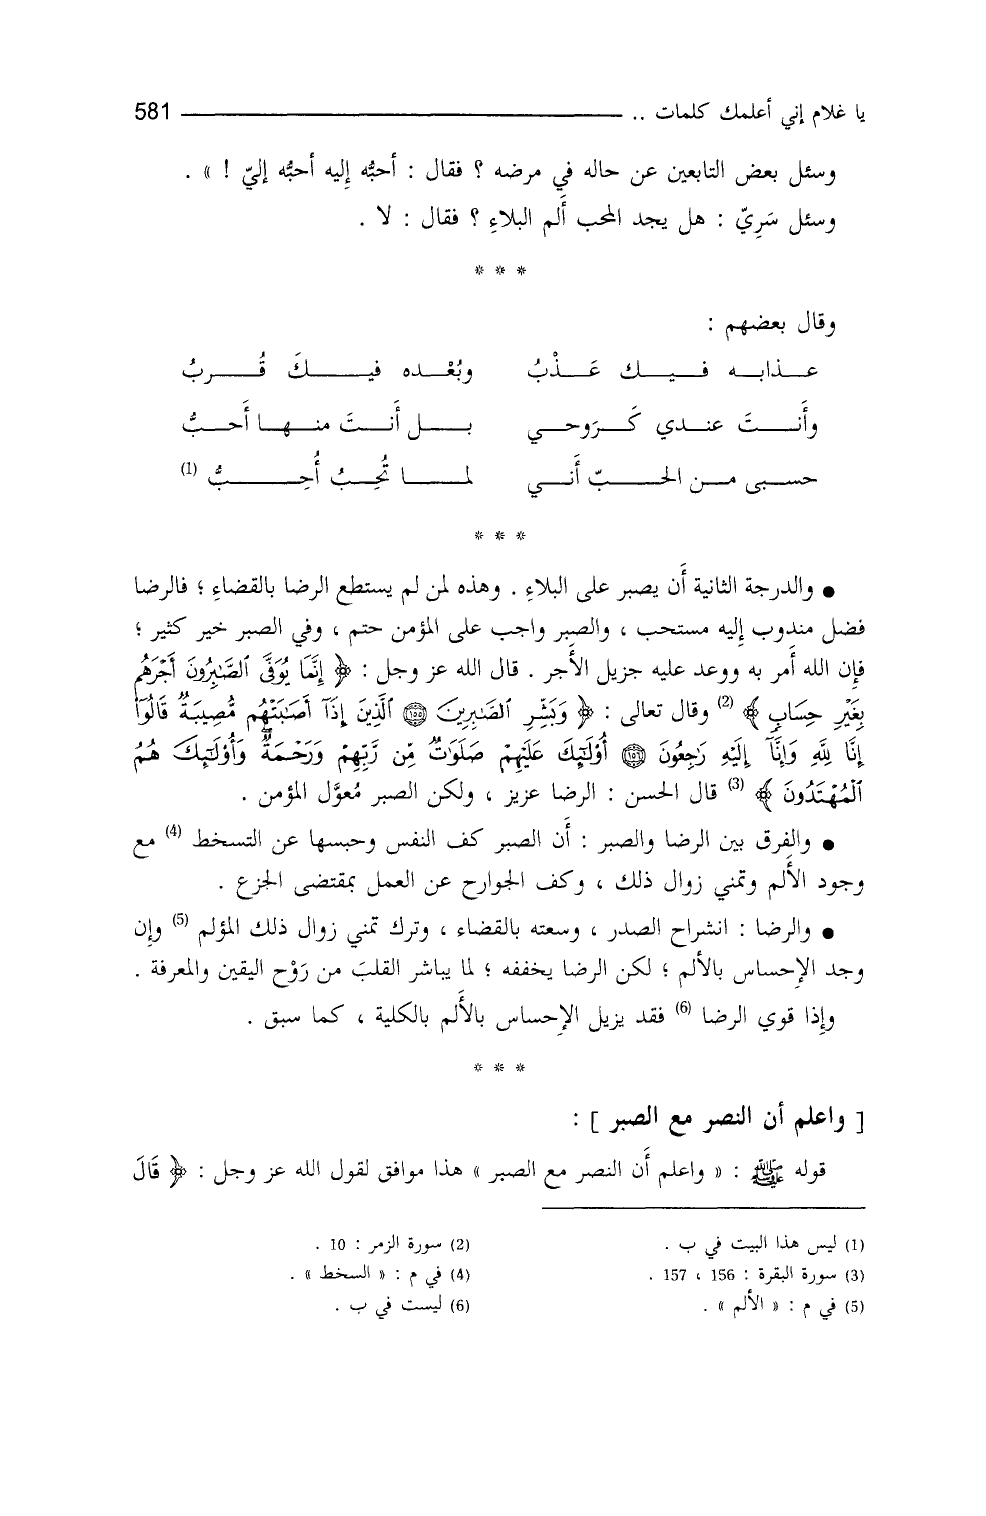 يا غلام إني أعلمك كلمات .. 581
وسئل بعض التابعين عن حاله في مرضه ؟ فقال : أحبُّه إليه أحبُّه إليّ ! » .
وسئل سَرِيّ : هل يجد المحب أَلم البلاءِ ؟ فقال : لا .
* * *
وقال بعضهم :
عـذابـه فـيـك عَـذْبُ وبُعْـده فيـكَ قُـربُ
وأَنـتَ عنـدي كَـرَوحـي بـل أَنـتَ منهـا أَحـبُّ
حسـبى مـن الحـبّ أَنـي لمـا تُحِـبُ أُحِـبُّ (1)
* * *
● والدرجة الثانية أَن يصبر على البلاءِ . وهذه لمن لم يستطع الرضا بالقضاءِ ؛ فالرضا
فضل مندوب إِليه مستحب ، والصبر واجب على المؤمن حتم ، وفي الصبر خير كثير ؛
فإِن الله أَمر به ووعد عليه جزيل الأَجر . قال الله عز وجل : ﴿ إِنَّمَا يُوَفَّى ٱلصَّٰبِرُونَ أَجْرَهُم
بِغَيْرِ حِسَابٍ ﴾ (2) وقال تعالى : ﴿ وَبَشِّرِ ٱلصَّٰبِرِينَ ١٥٥ ٱلَّذِينَ إِذَآ أَصَٰبَتْهُم مُّصِيبَةٌ قَالُوٓا۟
إِنَّا لِلَّهِ وَإِنَّآ إِلَيْهِ رَٰجِعُونَ ١٥٦ أُو۟لَٰٓئِكَ عَلَيْهِمْ صَلَوَٰتٌ مِّن رَّبِّهِمْ وَرَحْمَةٌ وَأُو۟لَٰٓئِكَ هُمُ
ٱلْمُهْتَدُونَ ﴾ (3) قال الحسن : الرضا عزيز ، ولكن الصبر مُعوَّل المؤمن .
● والفرق بين الرضا والصبر : أَن الصبر كف النفس وحبسها عن التسخط (4) مع
وجود الأَلم وتمني زوال ذلك ، وكف الجوارح عن العمل بمقتضى الجزع .
● والرضا : انشراح الصدر ، وسعته بالقضاء ، وترك تمني زوال ذلك المؤلم (5) وإن
وجد الإِحساس بالألم ؛ لكن الرضا يخففه ؛ لما يباشر القلبَ من رَوْح اليقين والمعرفة .
وإِذا قوي الرضا (6) فقد يزيل الإِحساس بالأَلم بالكلية ، كما سبق .
* * *
[ واعلم أن النصر مع الصبر ] :
قوله ﷺ : « واعلم أَن النصر مع الصبر » هذا موافق لقول الله عز وجل : ﴿ قَالَ
(1) ليس هذا البيت في ب . (2) سورة الزمر : 10 .
(3) سورة البقرة : 156 ، 157 . (4) في م : « السخط » .
(5) في م : « الألم » . (6) ليست في ب .